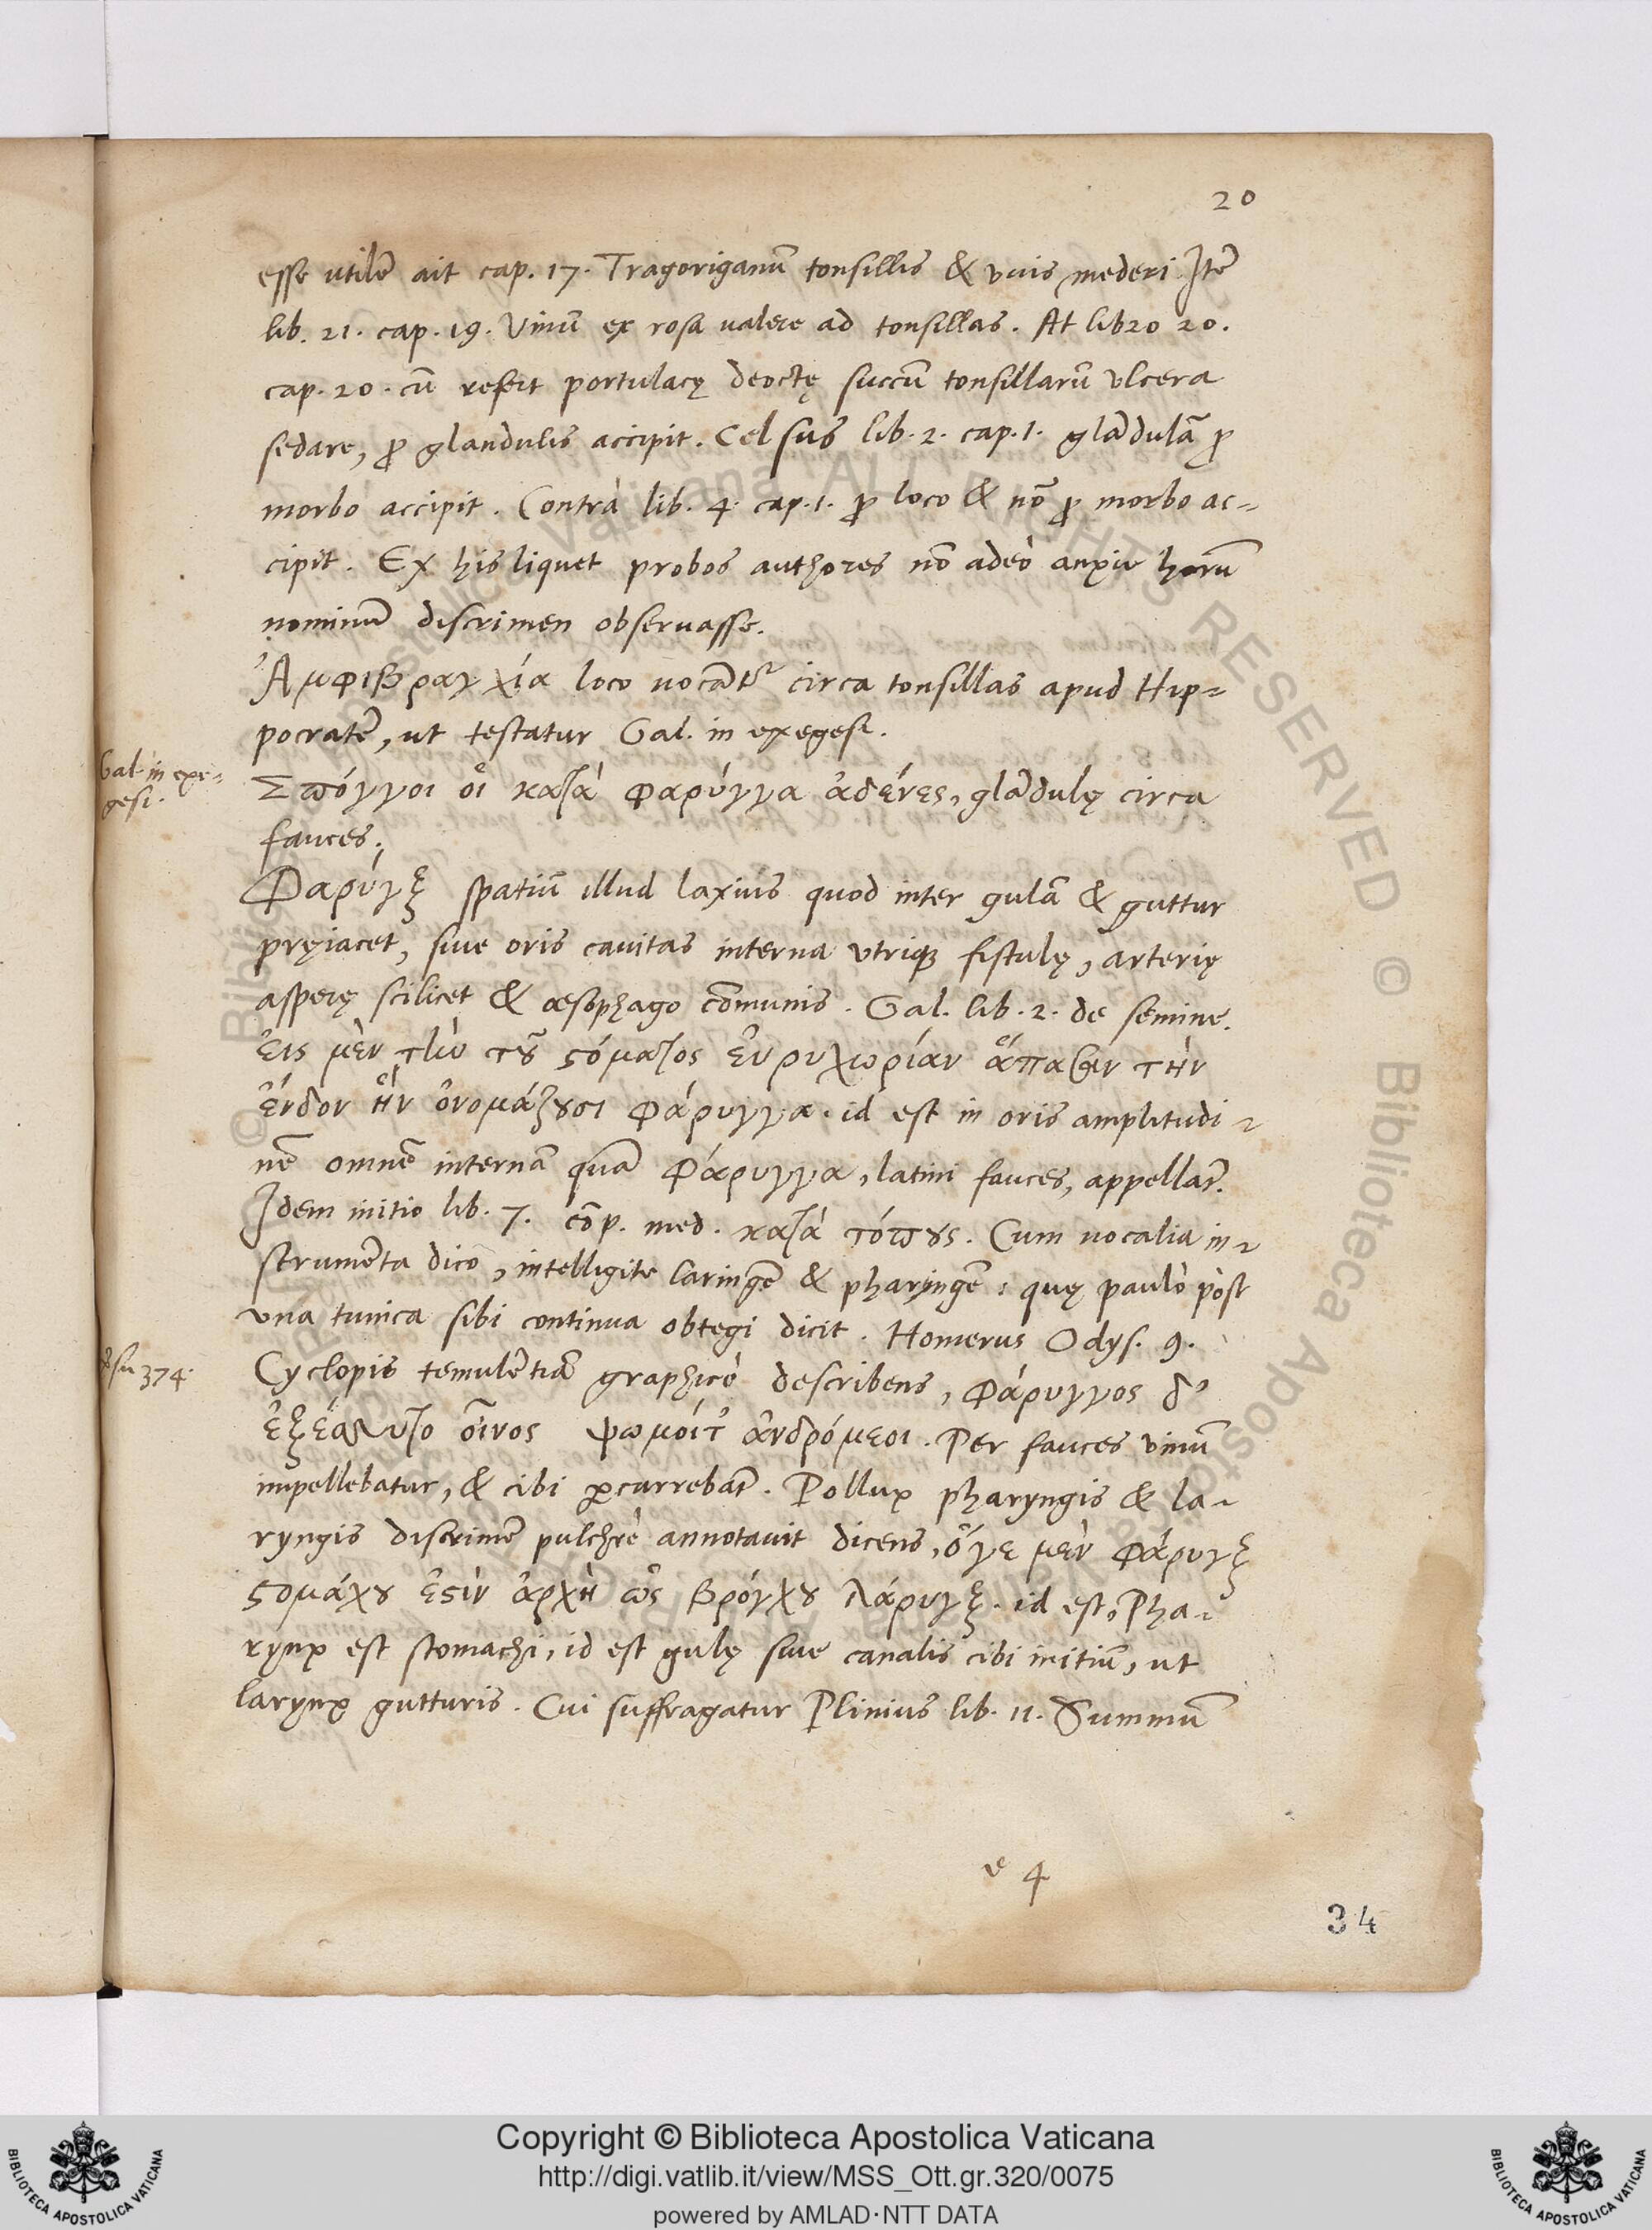 20
esse utilē ait cap. 17. Tragoriganū tonsillis & vuis mederi. Itē
lib. 21. cap. 19. Vinū ex rosa ualere ad tonsillas. At libro 20.
cap. 20. cū refert portulacę decoctę succū tonsillarū vlcera
sedare, ꝓ glandulis accipit. Celsus lib. 2. cap. 1. glādulā ꝓ
morbo accipit. Contrà lib. 4. cap. 1. ꝓ loco & nō ꝓ morbo ac-
cipit. Ex his liquet probos authores nō adeò anxie horū
nominū discrimen obseruasse.
Ἀμφιβραγχία loco uocātur circa tonsillas apud Hip-
pocratē, ut testatur Gal. in exegesi.
Gal. in exe-
gesi.
Σπόγγοι οἱ κατὰ φαρύγγα ἀδένες, glādulę circa
fauces.
Φαρύγξ spatiū illud laxius quod inter gulā & guttur
pręiacet, siue oris cauitas interna vtriqꝫ fistulę, arterię
asperę scilicet & œsophago cōmunis. Gal. lib. 2. de semine.
εἰς μὲν τὴν τοῦ στόματος εὐρυχωρίαν ἅπασαν τὴν
ἔνδον ἣν ὀνομάζουσι φάρυγγα. id est in oris amplitudi-
nē omnē internā quā φάρυγγα, latini fauces, appellāt.
Idem initio lib. 7. cōp. med. κατὰ τόπους. Cum uocalia in-
strumēta dico, intelligite laringē & pharyngē: quę paulò pòst
vna tunica sibi continua obtegi dicit. Homerus Odys. 9.
v̓su 374.
Cyclopis temulētiā graphicè describens, φάρυγγος δ'
ἐξέσσυτο οἶνος ψωμοίτ' ἀνδρόμεοι. Per fauces vinū
impellebatur, & cibi ꝑcurrebāt. Pollux pharyngis & la-
ryngis discrimē pulchrè annotauit dicens, ὅγε μὲν φάρυγξ
στομάχου ἐστὶν ἀρχὴ ὡς βρόγχου λάρυγξ. id est, Pha-
rynx est stomachi, id est gulę siue canalis cibi initiū, ut
larynx gutturis. Cui suffragatur Plinius lib. 11. Summū
e 4
34
Copyright © Biblioteca Apostolica Vaticana
http://digi.vatlib.it/view/MSS_Ott.gr.320/0075
powered by AMLAD·NTT DATA